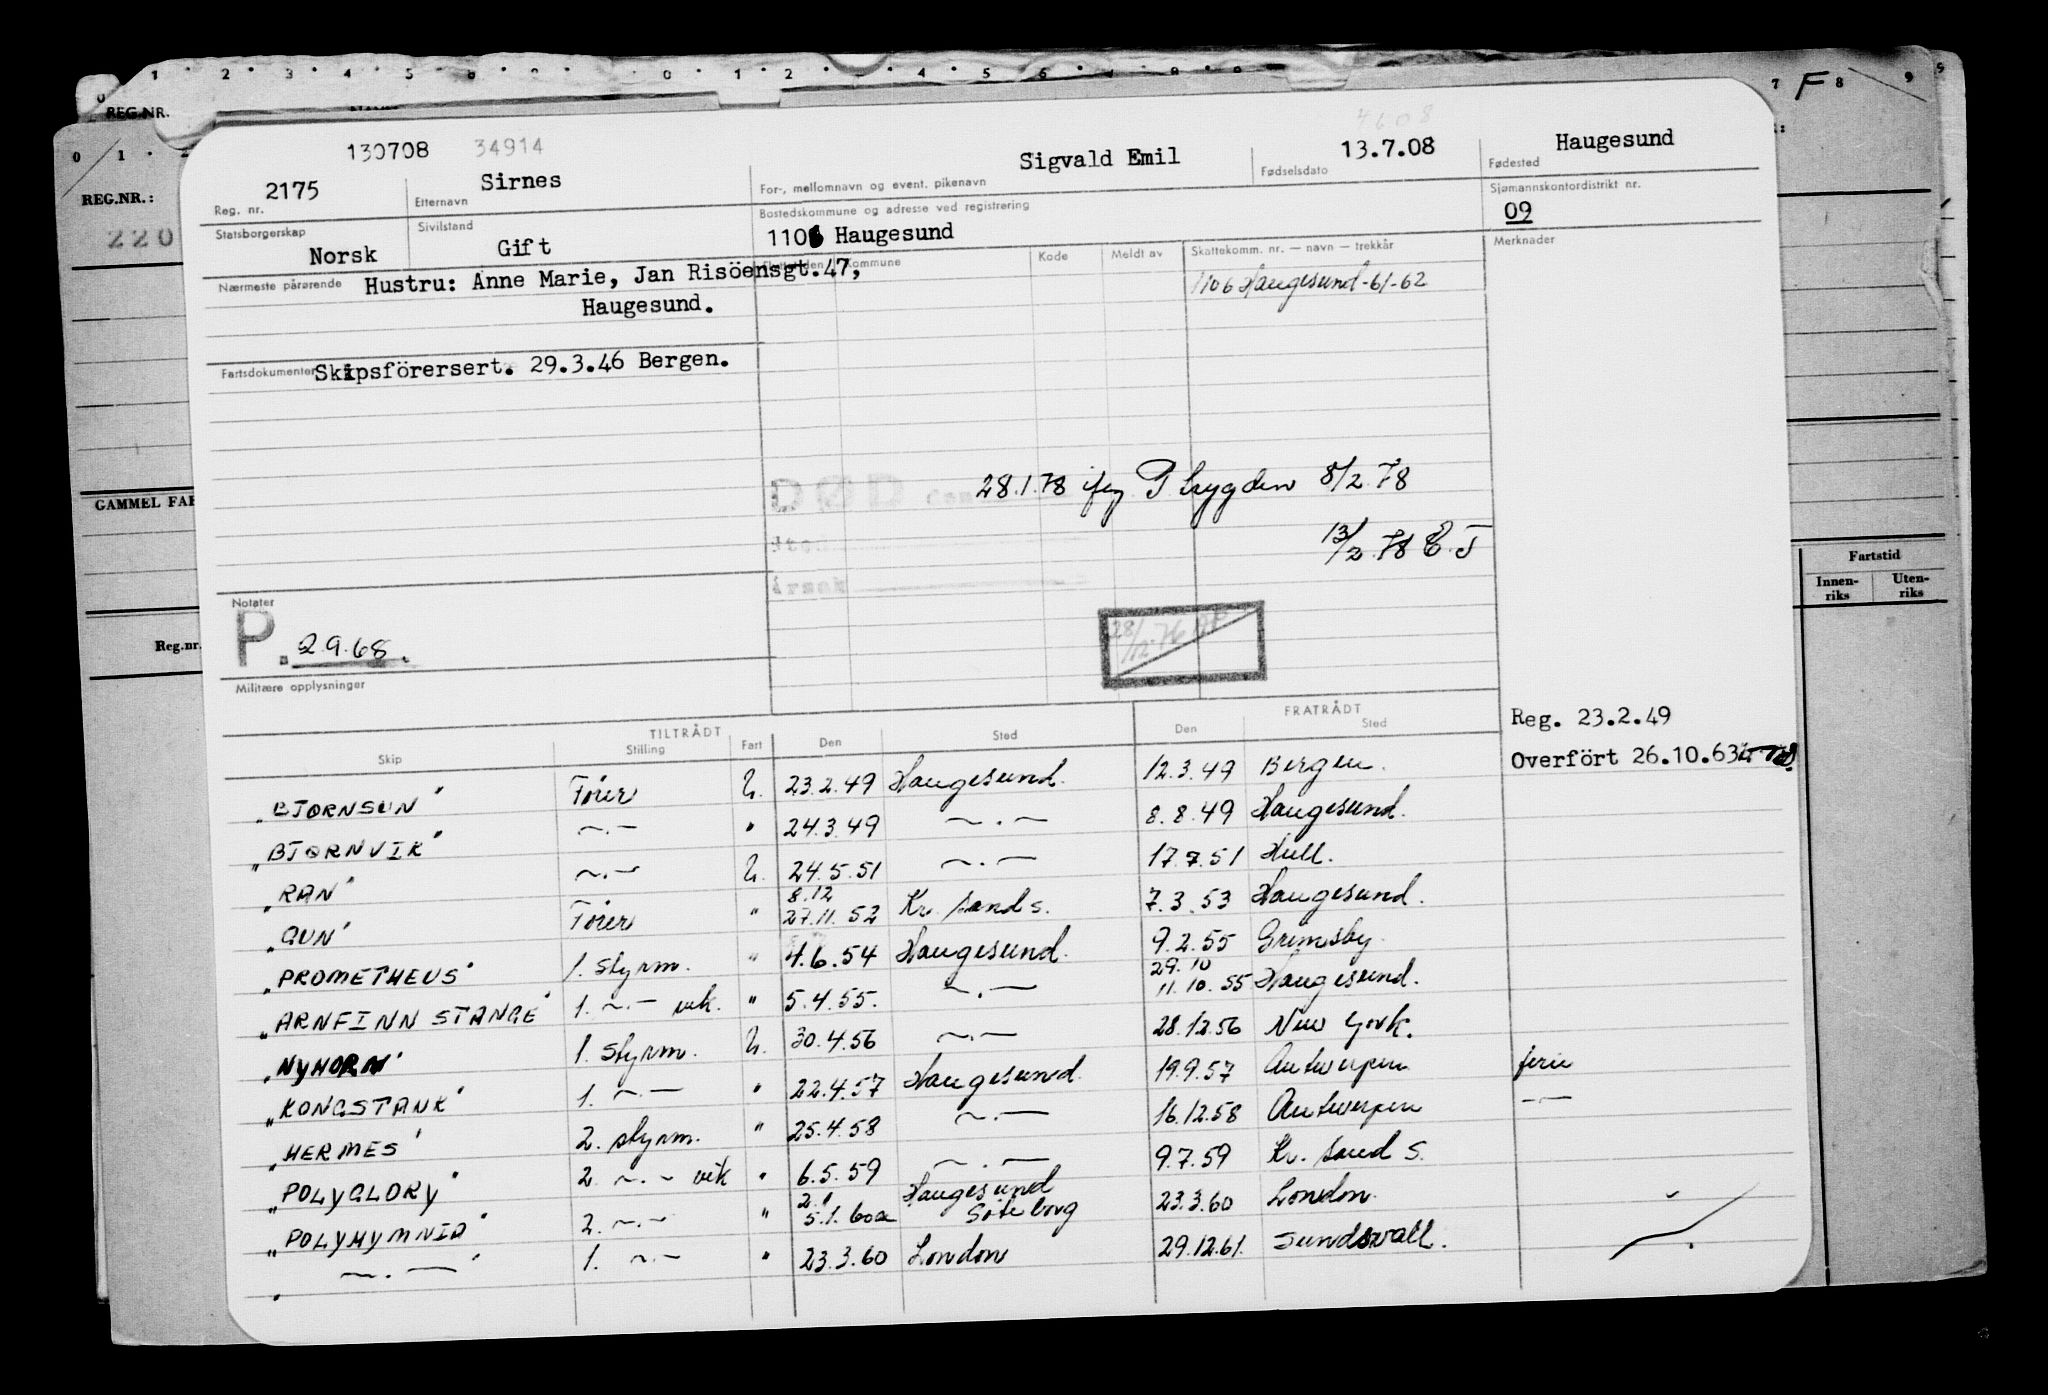 0 1 . 2 . 3 . 4 . 5 0 1 2 4 5 6 9 7 F 8 9
REG.NR.
REG.NR.:
220
GAMMEL FAR
Reg.nr.
Fartstid
Innen-riks Uten-riks
4608
130708 34914 Sigvald Emil 13.7.08 Haugesund
2175 Sirnes
Reg. nr. Etternavn For-, mellomnavn og event. pikenavn Fødselsdato Fødested
Statsborgerskap Sivilstand Bostedskommune og adresse ved registrering Sjømannskontordistrikt nr.
Norsk Gift 1106 Haugesund 09
Nærmeste pårørende Kommune Kode Meldt av Skattekomm. nr. — navn — trekkår Merknader
Hustru: Anne Marie, Jan Risöensgt.47,
Haugesund.
1106 Haugesund-61-62
Fartsdokumenter Skipsförersert. 29.3.46 Bergen.
DØD den 28.1.78 P trygden 8/2.78
13/2.78 E.J
Sted
Årsak
Notater
P. 2.9.68.
28/12.76
Militære opplysninger
Reg. 23.2.49
Overfört 26.10.63
TILTRÅDT FRATRÅDT
Skip Stilling Fart Den Sted Den Sted
"BJØRNSUN" Fører U. 23.2.49 Haugesund. 12.3.49 Bergen.
"BJØRNVIK" ~.- " 24.3.49 ~.— 8.8.49 Haugesund.
"RAN" ~.- U. 24.5.51 ~.— 17.7.51 Hull.
"GUN" Fører " 8.12 27.11.52 Kr. sand s. 7.3.53 Haugesund.
"PROMETHEUS" 1. styrm. " 4.6.54 Haugesund. 9.2.55 Grimsby
"ARNFINN STANGE" 1. ~.- vik. " 5.4.55. ~.— 29.10 11.10.55 Haugesund.
"NYHORN" 1. styrm. U. 30.4.56 ~.— 28.12.56 New York.
"KONGSTANK" 1. ~.— " 22.4.57 Haugesund 19.9.57 Antwerpen ferie
"HERMES" 2. styrm. " 25.4.58 ~.— 16.12.58 Antwerpen -.—
"POLYGLORY" 2. ~.- vik " 6.5.59 ~.— 9.7.59 Kr. sand S.
"POLYHYMNIA" 2. ~.- " 2. 5.1.60 Haugesund Göteborg 23.3.60 London.
~.—" 1. ~.- " 23.3.60 London 29.12.61. Sundsvall.